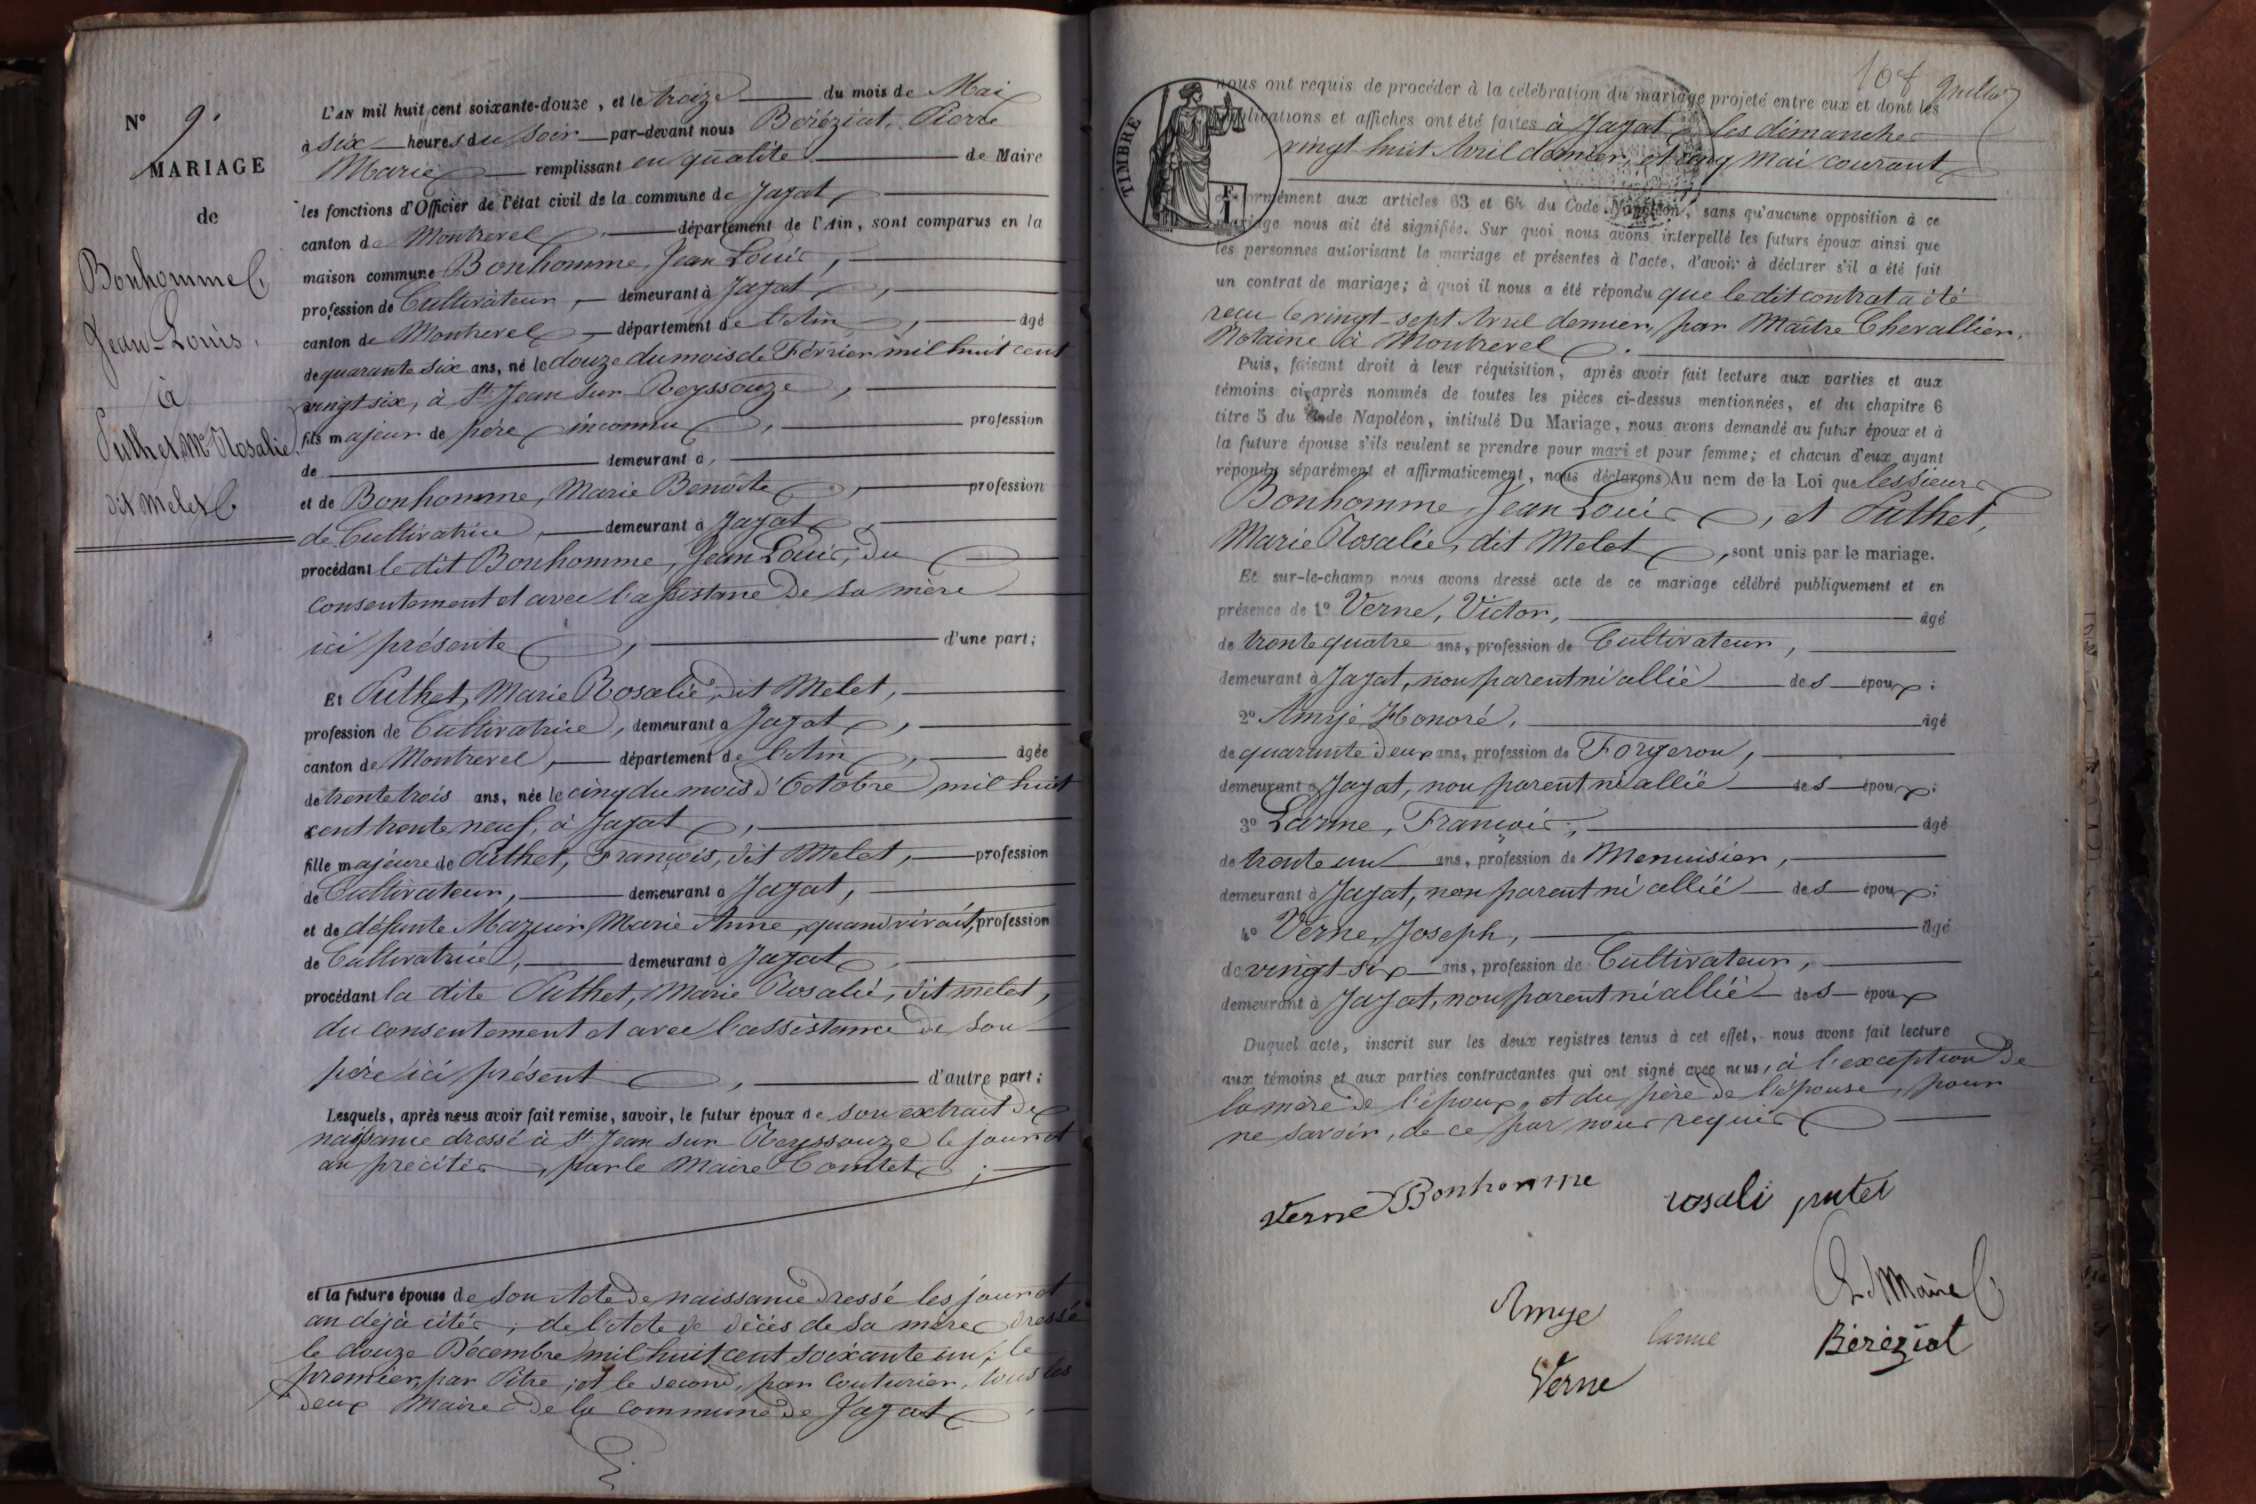 N° 9.
MARIAGE
de
Bonhomme
Jean-Louis.
à
Puthet, Mie Rosalie,
dit Melet
L'AN mil huit cent soixante-douze, et le treize du mois de Mai
à six heures du soir par-devant nous Béréziat, Pierre
Marie remplissant en qualité de Maire
les fonctions d'Officier de l'état civil de la commune de Jayat
canton de Montrevel département de l'Ain, sont comparus en la
maison commune Bonhomme, Jean Louis,
profession de Cultivateur, demeurant à Jayat,
canton de Montrevel département de l'Ain, âgé
de quarante six ans, né le douze du mois de Février mil huit cent
vingt six, à St Jean sur Reyssouze,
fils majeur de père inconnu, profession
de demeurant à,
et de Bonhomme, Marie Benoite, profession
de Cultivatrice, demeurant à Jayat,
procédant le dit Bonhomme, Jean Louis, du
consentement et avec l'assistance de sa mère
ici présente, d'une part;
Et Puthet, Marie Rosalie, dit Melet,
profession de Cultivatrice, demeurant à Jayat,
canton de Montrevel, département de l'Ain, âgée
de trente trois ans, née le cinq du mois d'Octobre mil huit
cent trente neuf, à Jayat,
fille majeure de Puthet, François, dit Melet, profession
de Cultivateur, demeurant à Jayat,
et de défunte Mazuir, Marie Anne, quand vivait, profession
de Cultivatrice, demeurant à Jayat,
procédant la dite Puthet, Marie Rosalie, dit melet,
du consentement et avec l'assistance de son
père ici présent, d'autre part;
Lesquels, après nous avoir fait remise, savoir, le futur époux de son extrait de
naissance dressé à St Jean sur Reyssouze le jour et
an précités, par le Maire Comtet;
et la future épouse de son Acte de naissance dressé les jour et
an déjà cités, de l'Acte de décès de sa mère dressé
le douze Décembre mil huit cent soixante un; le
premier, par Pitre, et le second, par Couturier, tous les
deux Maires de la commune de Jayat.
108
TIMBRE
nous ont requis de procéder à la célébration du mariage projeté entre eux et dont les
publications et affiches ont été faites à Jayat les dimanches
vingt huit Avril dernier, et cinq Mai courant
conformément aux articles 63 et 64 du Code Napoléon, sans qu'aucune opposition à ce
mariage nous ait été signifiée. Sur quoi nous avons interpellé les futurs époux ainsi que
les personnes autorisant le mariage et présentes à l'acte, d'avoir à déclarer s'il a été fait
un contrat de mariage; à quoi il nous a été répondu que le dit contrat a été
reçu le vingt-sept Avril dernier, par Maître Chevallier,
Notaire à Montrevel.
Puis, faisant droit à leur réquisition, après avoir fait lecture aux parties et aux
témoins ci-après nommés de toutes les pièces ci-dessus mentionnées, et du chapitre 6
titre 5 du Code Napoléon, intitulé Du Mariage, nous avons demandé au futur époux et à
la future épouse s'ils veulent se prendre pour mari et pour femme; et chacun d'eux ayant
répondu séparément et affirmativement, nous déclarons Au nom de la Loi que les sieurs
Bonhomme, Jean Louis, et Puthet,
Marie Rosalie, dit Melet, sont unis par le mariage.
Et sur-le-champ nous avons dressé acte de ce mariage célébré publiquement et en
présence de 1° Verne, Victor, âgé
de trente quatre ans, profession de Cultivateur,
demeurant à Jayat, non parent ni allié des époux;
2° Amyé, Honoré, âgé
de quarante deux ans, profession de Forgeron,
demeurant à Jayat, non parent ni allié des époux;
3° Larme, François, âgé
de trente un ans, profession de Menuisier,
demeurant à Jayat, non parent ni allié des époux;
4° Verne, Joseph, âgé
de vingt six ans, profession de Cultivateur,
demeurant à Jayat, non parent ni allié des époux
Duquel acte, inscrit sur les deux registres tenus à cet effet, nous avons fait lecture
aux témoins et aux parties contractantes qui ont signé avec nous, à l'exception de
la mère de l'époux, et du père de l'épouse, pour
ne savoir, de ce par nous requis
Verne Bonhomme rosali putet
Le Maire
Amye larme Béréziat
Verne